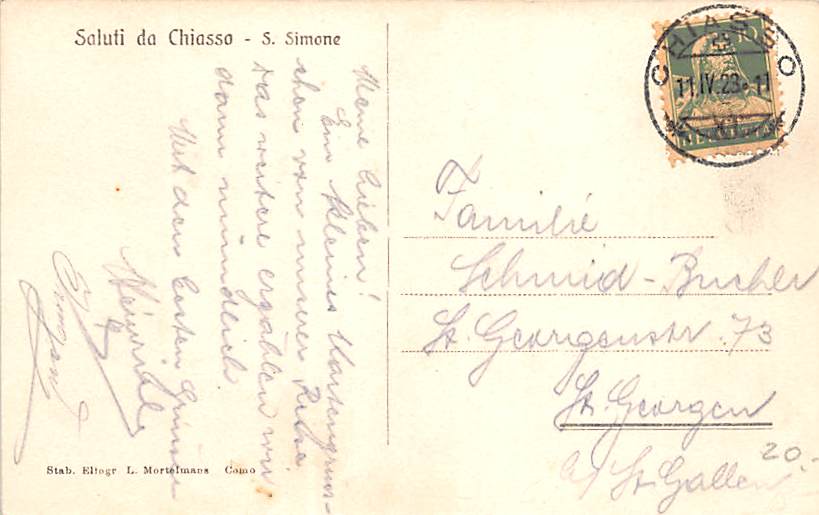 Saluti da Chiasso - S. Simone
Meine Lieben!
Ein kleines Kartengrüss-
chen von unserer Reise
das weitere erzählen wir
dann mündlich.
Mit den besten Grüssen
Heinrich
CHIASSO
11.IV.23.-11
10
HELVETIA
Familie
Schmid-Bucher
St. Georgenstr. 73
St. Georgen
a/ St. Gallen
20.-
Stab. Eliogr L. Mortelmans Como